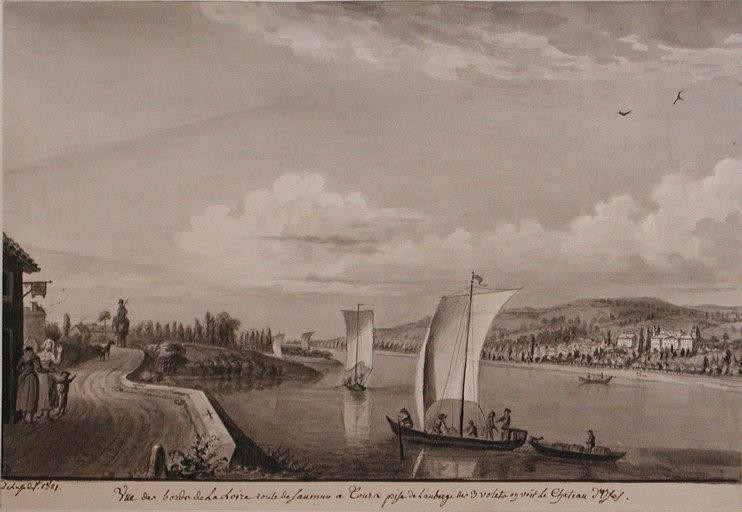 del. 1801.
Vue des bords de La Loire route de Saumur a Tours prise de L'auberge des 3 volets on voit Le Chateau d'Usse.